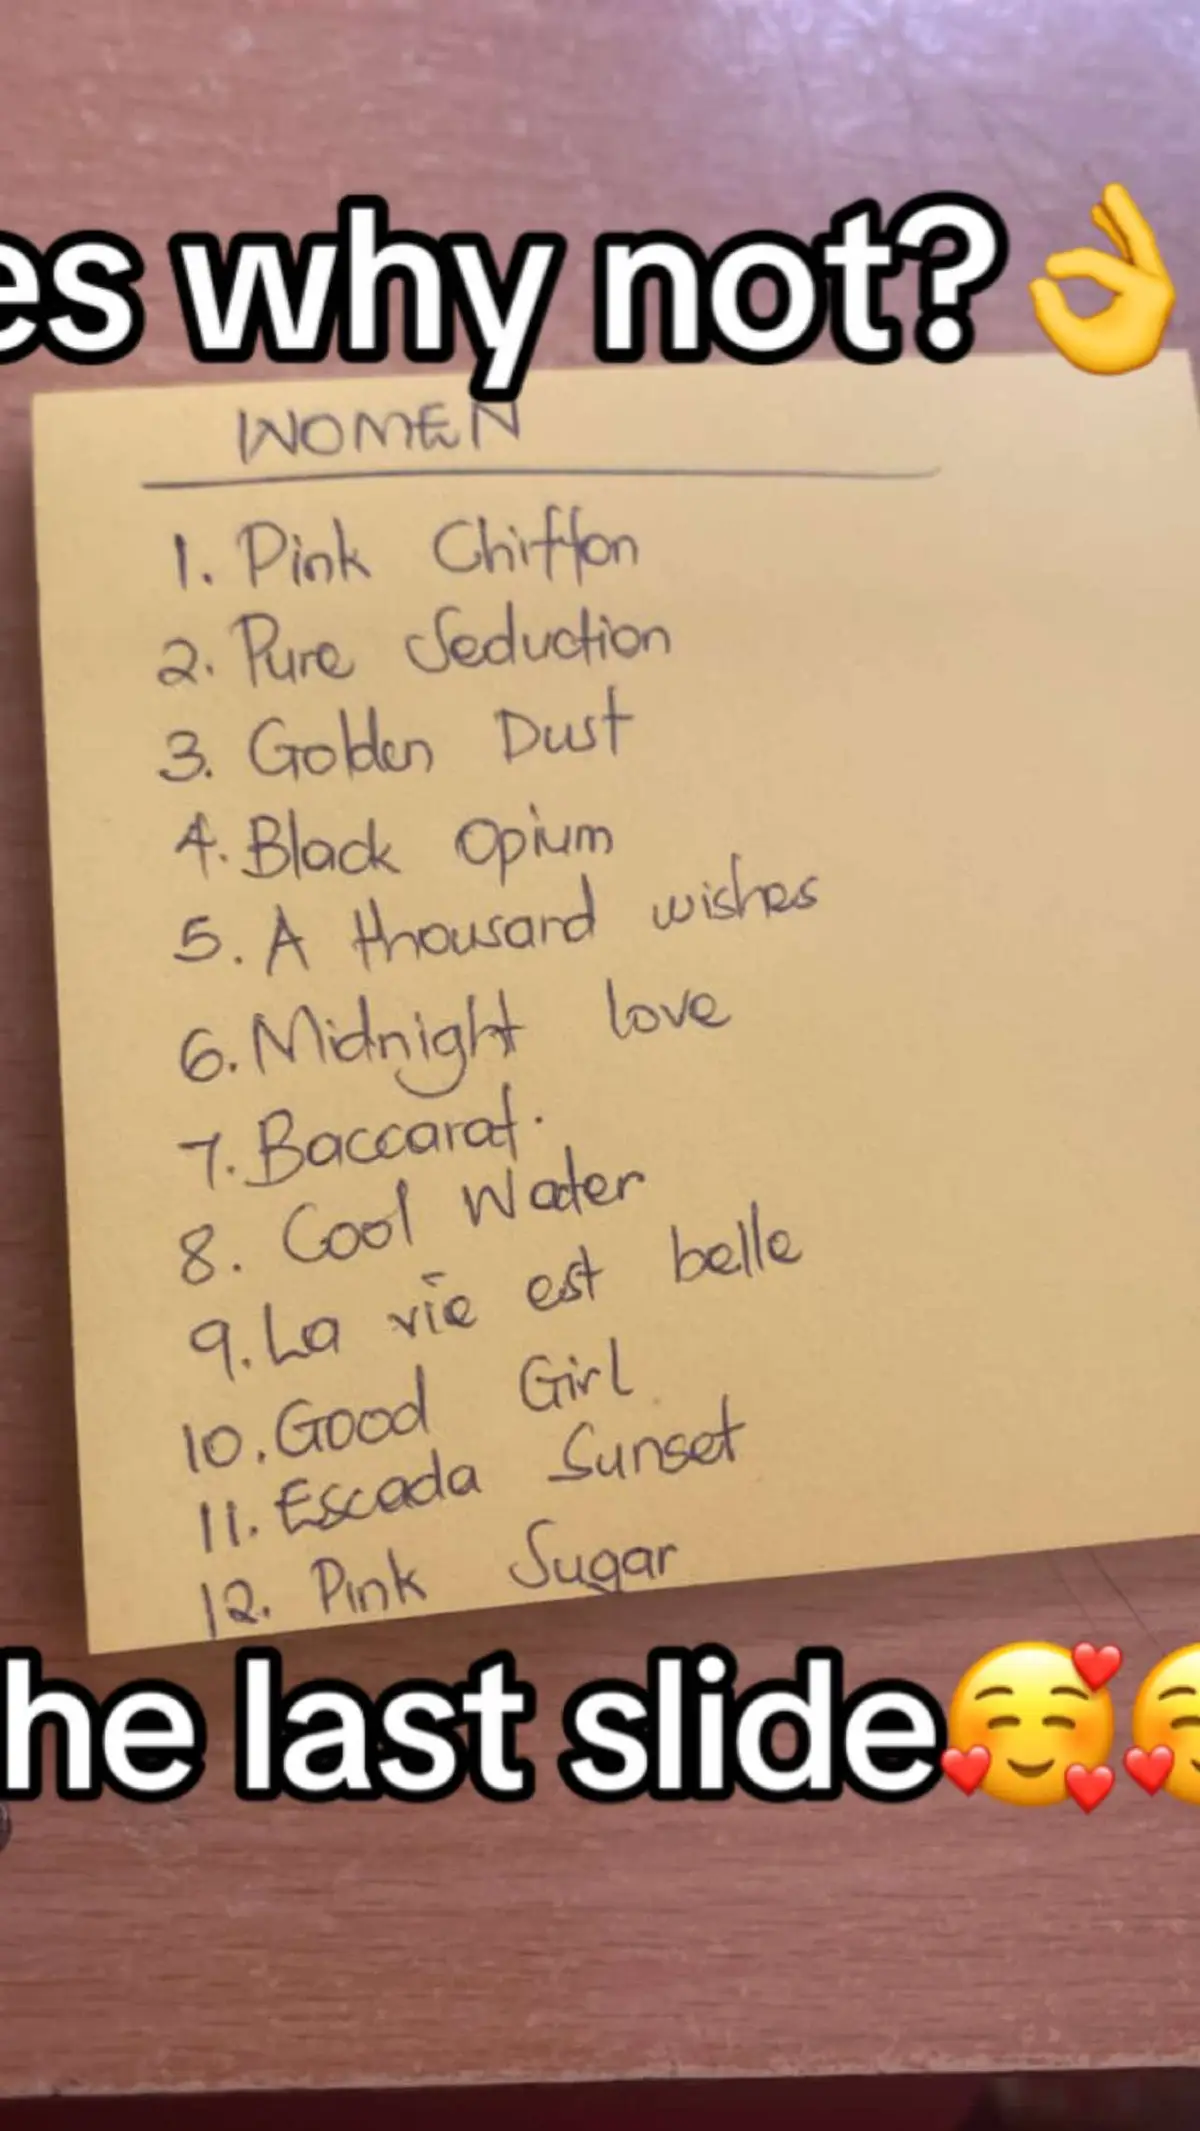 es why not?👌
WOMEN
1. Pink Chiffon
2. Pure Seduction
3. Golden Dust
4. Black Opium
5. A thousand wishes
6. Midnight love
7. Baccarat.
8. Cool Water
9. La vie est belle
10. Good Girl
11. Escada Sunset
12. Pink Sugar
he last slide🥰🥰